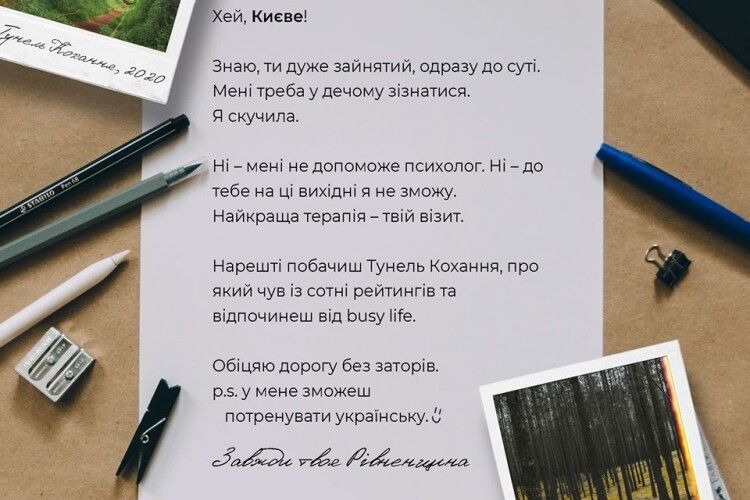 Хей, Києве!
Знаю, ти дуже зайнятий, одразу до суті.
Мені треба у дечому зізнатися.
Я скучила.
Ні – мені не допоможе психолог. Ні – до
тебе на ці вихідні я не зможу.
Найкраща терапія – твій візит.
Нарешті побачиш Тунель Кохання, про
який чув із сотні рейтингів та
відпочинеш від busy life.
Обіцяю дорогу без заторів.
p.s. у мене зможеш
потренувати українську.
Завжди твоє Рівненщина
Тунель Кохання, 2020
STABILO Pen 68